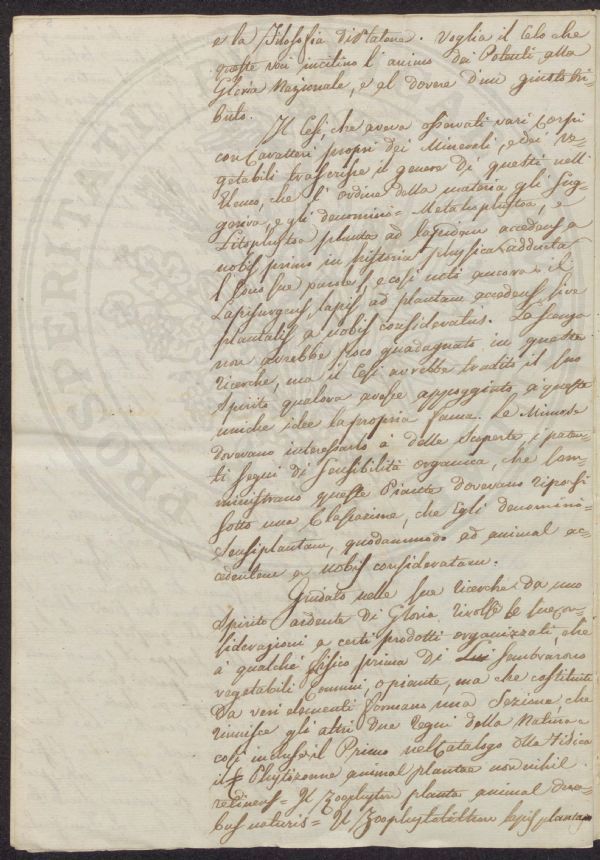 e la Filosofia di Platone. Voglia il Celo che
queste voci incitino l'animo dei Potenti alla
Gloria Nazionale, e al dovere d'un giusto tri-
buto.
Il Cesi, che aveva osservati vari Corpi
con Caratteri propri dei Minerali, e dei Ve-
getabili trascrisse il genere di questi nell'
Elenco, che l'ordine della materia gli sug-
geriva, e gli denominò = Metallophytoa, e
Litophytoa planta ad lapidem accedens a
nobis primo in historia physica adducta
e così noti ancora il
Lapisurgens, lapis ad plantam accedens, sive
plantalis a nobis consideratus. La scienza
non avrebbe poco guadagnato in queste
ricerche, ma il Cesi avrebbe tradito il suo
Spirito qualora avesse appoggiata a queste
uniche idee la propria fama. Le Mimose
dovevano interessarlo a delle scoperte, i paten-
ti segni di sensibilità organica, che som-
ministrano queste Piante dovevano riporsi
sotto una Classazione, che Egli denominò =
Sensiplantam, quodammodo ad animal ac-
cedentem a nobis consideratam.
Guidato nelle sue ricerche da uno
Spirito ardente di Gloria rivolse le sue con-
siderazioni a certi prodotti organizzati, che
a qualche fisico prima di Lui sembrarono
vegetabili Comuni, o piante, ma che costituiti
da veri elementi formano una Sezione, che
riunisce gli altri due regni della Natura a
così incluse il Primo nel Catalogo
il Phytizoone animal plantae nonnihil
retinens = Il Zoophyton planta animal duo-
bus naturis = Il Zoophytolithon lapis plantaq